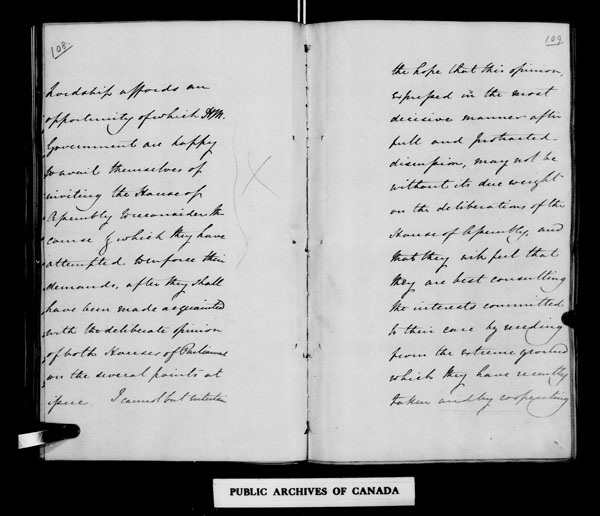 108.
Lordships affords an
opportunity of which H.M.
Government are happy
to avail themselves of
inviting the House of
Assembly to reconsider the
course by which they have
attempted to enforce their
demands, after they shall
have been made acquainted
with the deliberate opinion
of both Houses of Parliament
on the several points at
issue. I cannot but entertain
109
the hope that this opinion,
expressed in the most
decisive manner after
full and protracted
discussion, may not be
without its due weight
on the deliberations of the
House of Assembly, and
that they will feel that
they are best consulting
the interests committed
to their care by receding
from the extreme ground
which they have recently
taken and by cooperating
PUBLIC ARCHIVES OF CANADA